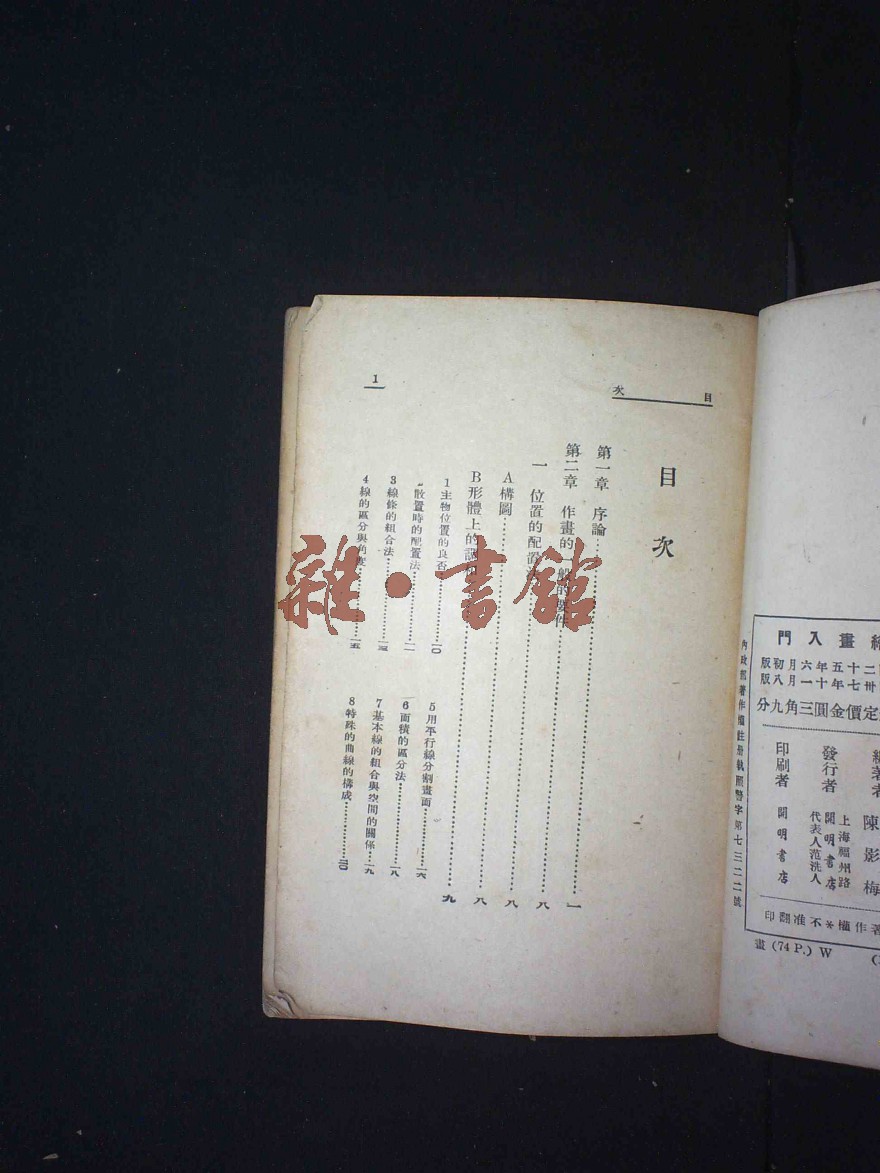 繪畫入門
二十五年六月初版
卅七年十一月八版
定價金圓三角九分
陳影梅
發行者 開明書店
上海福州路
代表人范洗人
印刷者 開明書店
著作權*不准翻印
內政部著作權註冊執照警字第七三二二號
畫 (74 P.) W
目 次
目次
第一章 序論……一
第二章 作畫的一般的要件……八
一 位置的配置……八
A構圖……八
B形體上的……九
1主物位置的良否……一〇
散置時的配置法……一二
3線條的組合法……一三
4線的區分與角度……一五
5用平行線分割畫面……一六
6面積的區分法……一八
7基本線的組合與空間的關係……一九
8特殊的曲線的構成……二〇
1
雜·書館